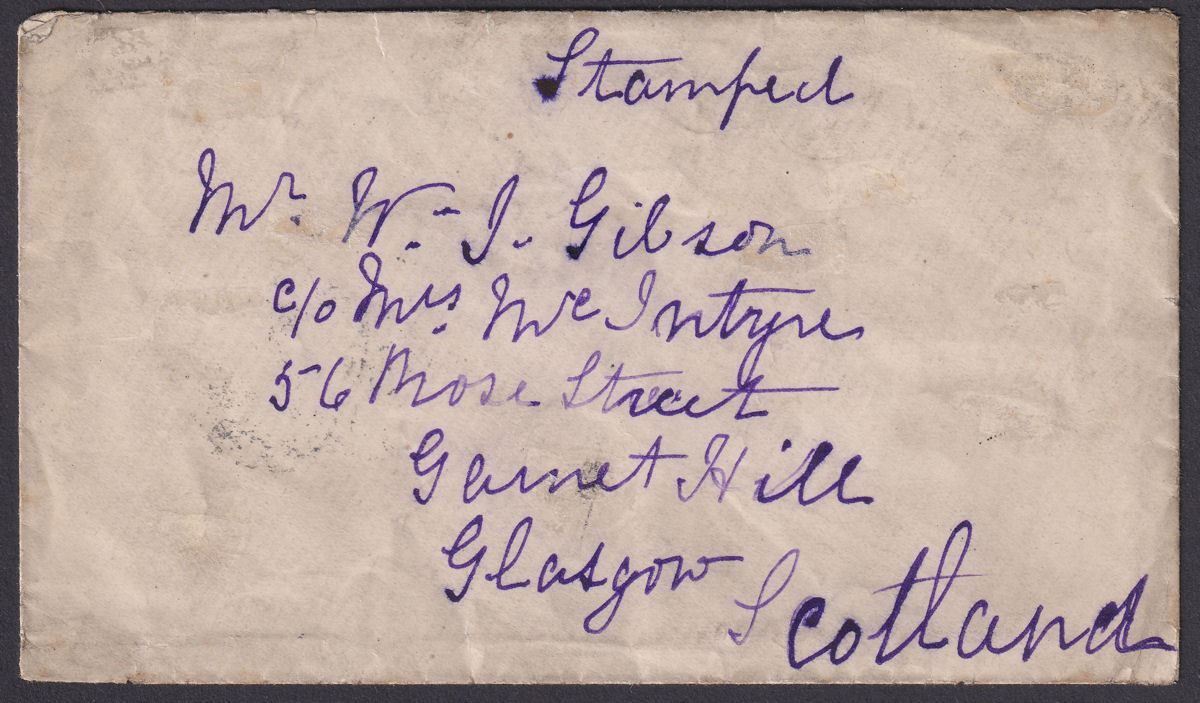 Stamped
Mr. Wm. J. Gibson
c/o Mrs. McIntyre
56 Rose Street
Garnet Hill
Glasgow
Scotland